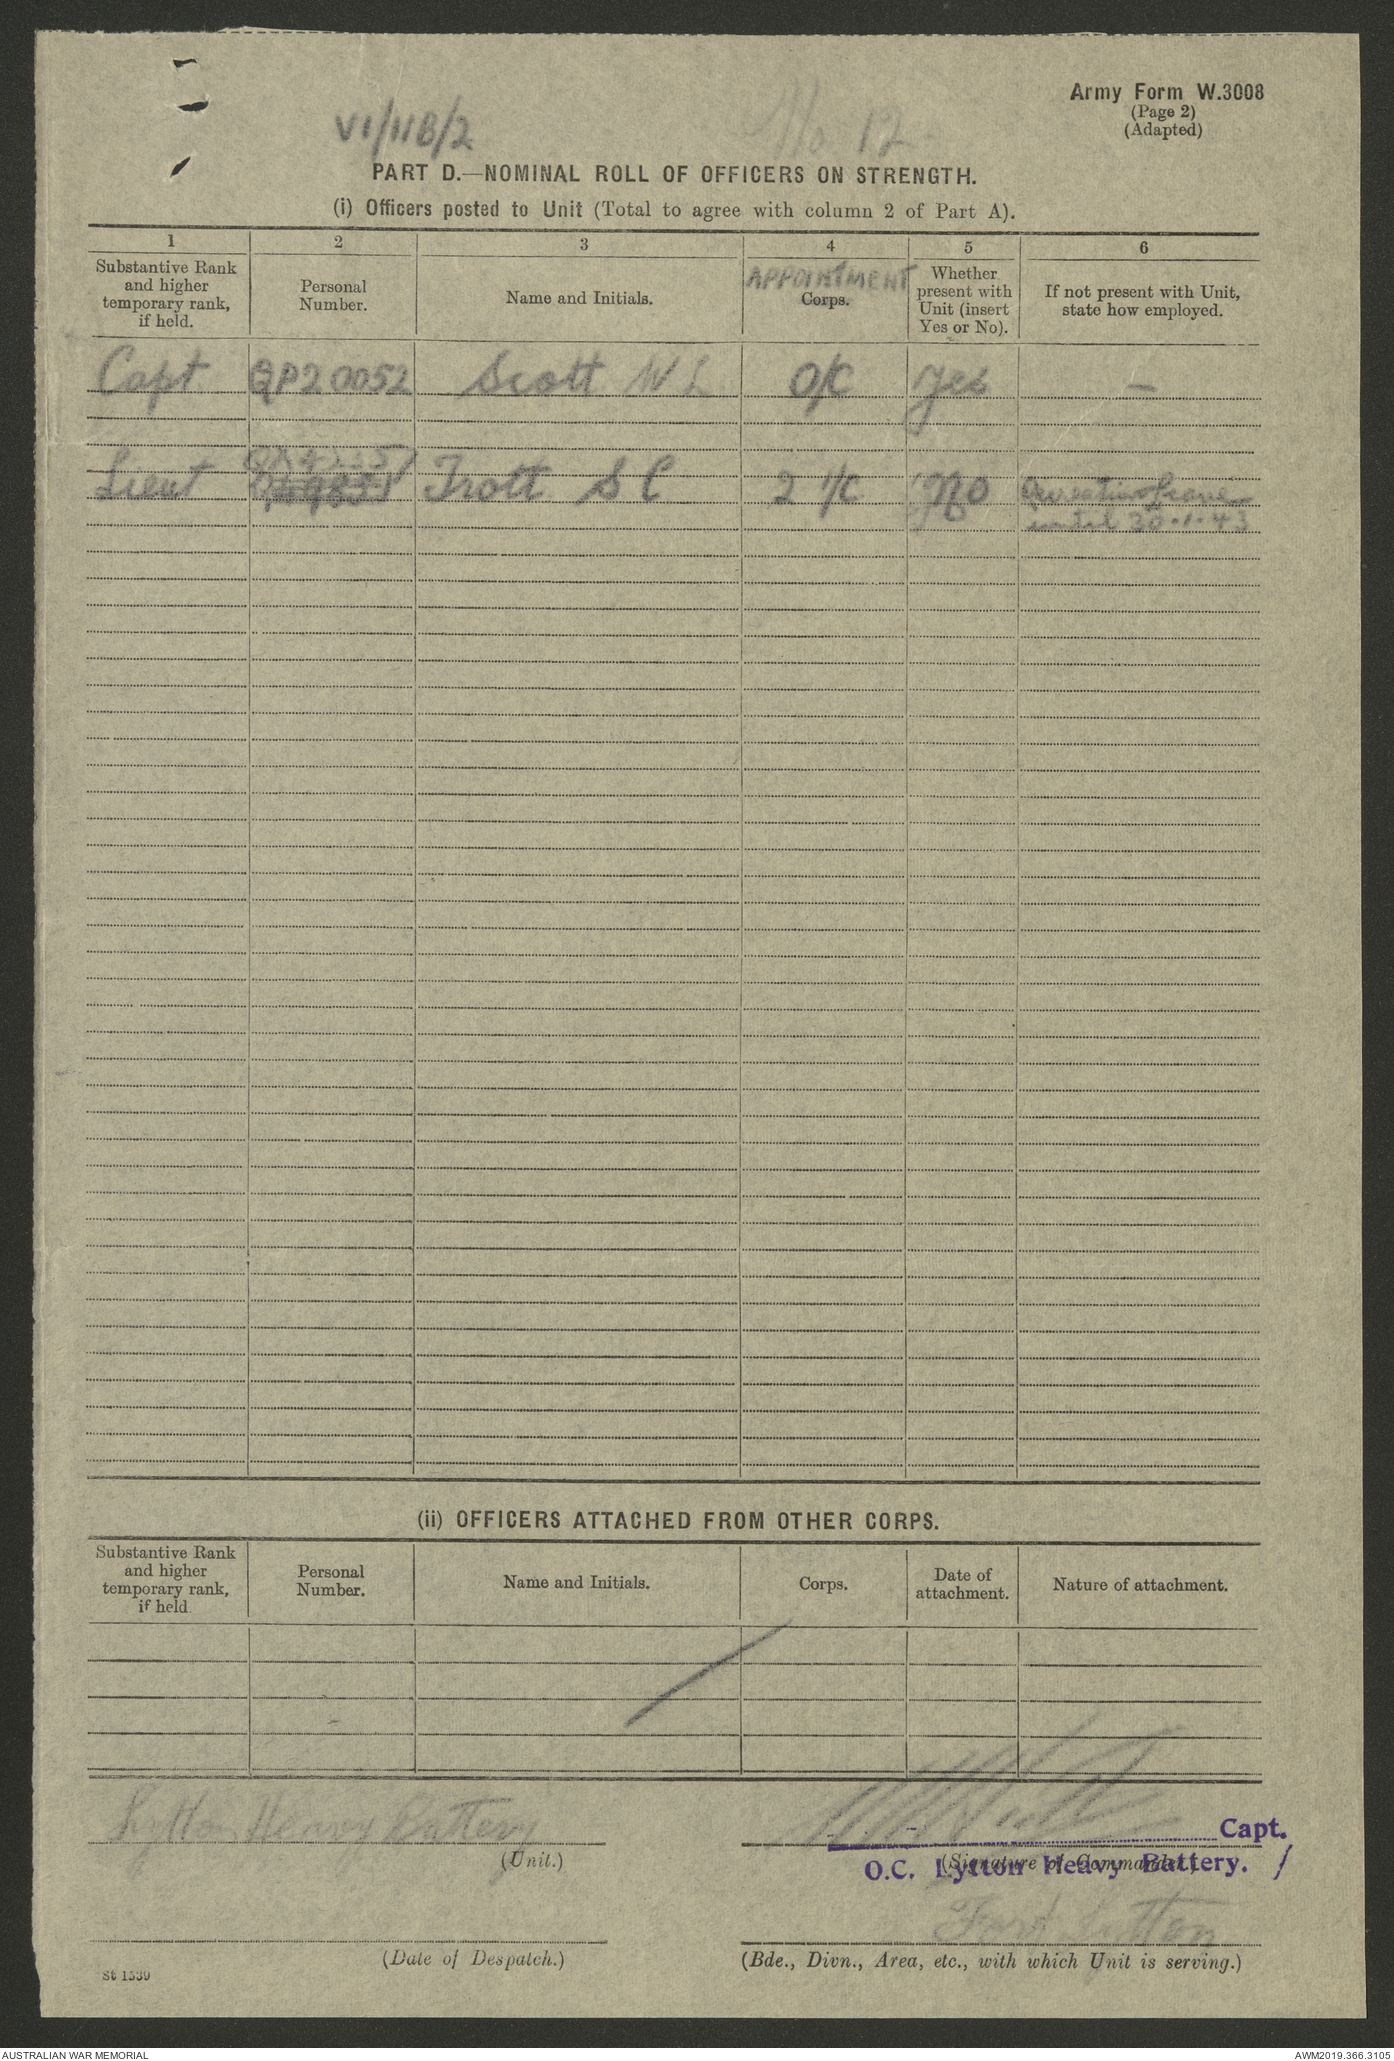 Army Form W.3008
(Page 2)
(Adapted)
VI/11B/2
No 12
PART D.—NOMINAL ROLL OF OFFICERS ON STRENGTH.
(i) Officers posted to Unit (Total to agree with column 2 of Part A).
1 2 3 4 5 6
Substantive Rank and higher temporary rank, if held.
Personal Number.
Name and Initials.
APPOINTMENT
Corps.
Whether present with Unit (insert Yes or No).
If not present with Unit, state how employed.
Capt QP20052 Scott W L O/C Yes —
Lieut Trott S C 2 I/C No
until 30.1.43
(ii) OFFICERS ATTACHED FROM OTHER CORPS.
Substantive Rank and higher temporary rank, if held
Personal Number.
Name and Initials.
Corps.
Date of attachment.
Nature of attachment.
Lytton Heavy Battery
(Unit.)
Capt.
(Signature of Commander.)
O.C. Lytton Heavy Battery.
Fort Lytton
(Date of Despatch.)
(Bde., Divn., Area, etc., with which Unit is serving.)
St 1539
AUSTRALIAN WAR MEMORIAL
AWM2019.366.3105